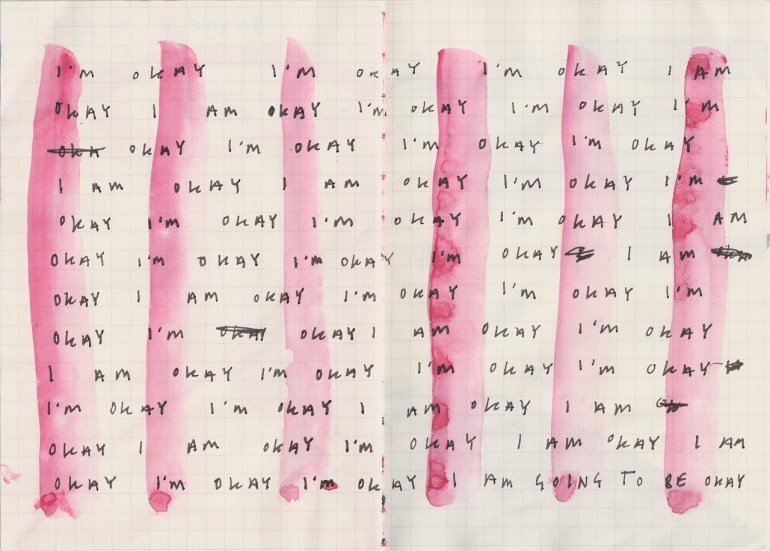 I'M OKAY I'M OKAY I'M OKAY I AM
OKAY I AM OKAY I'M OKAY I'M OKAY I'M
OKA OKAY I'M OKAY I'M OKAY I'M OKAY
I AM OKAY I AM OKAY I'M OKAY I'M
OKAY I'M OKAY I'M OKAY I'M OKAY I AM
OKAY I'M OKAY I'M OKAY I'M OKAY I AM
OKAY I AM OKAY I'M OKAY I'M OKAY I'M
OKAY I'M OKAY OKAY I AM OKAY I'M OKAY
I AM OKAY I'M OKAY I'M OKAY I'M OKAY
I'M OKAY I'M OKAY I AM OKAY I AM
OKAY I AM OKAY I'M OKAY I AM OKAY I AM
OKAY I'M OKAY I'M OKAY I AM GOING TO BE OKAY